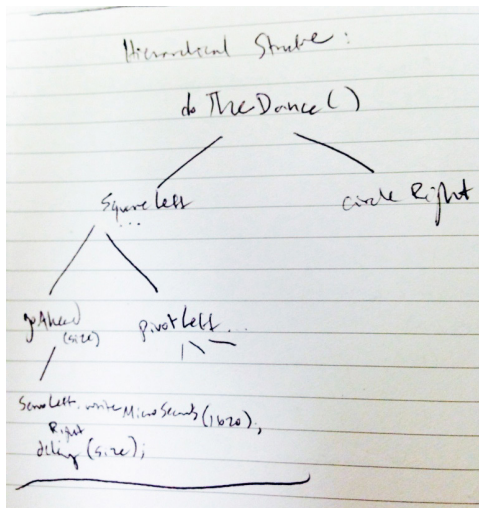 Hierarchical Structure:
doTheDance()
SquareLeft
...
circle Right
goAhead
(size)
pivotLeft...
ServoLeft.writeMicroSeconds(1620);
Right
delay(size);